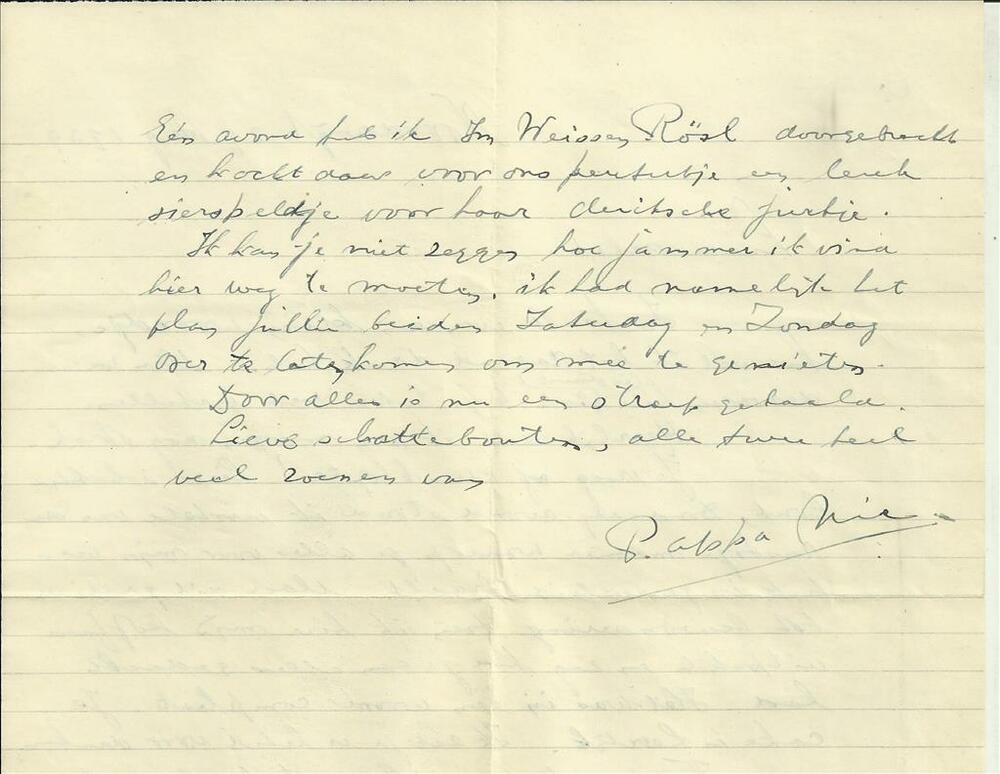 Eén avond heb ik Im Weissen Rössl doorgebracht
en kocht daar voor ons een leuk
sierspeldje voor haar duitsche jurkje.
Ik kan je niet zeggen hoe jammer ik vind
hier weg te moeten, ik had namelijk het
plan jullie beiden Zaterdag en Zondag
over te laten komen om mee te genieten.
Door alles is nu een streep gehaald.
Lieve schattebouten, alle twee heel
veel zoenen van
Pappa Nic